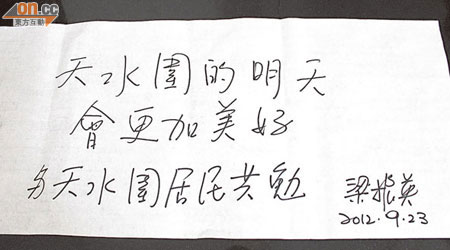 on.cc
東方互動
天水圍的明天
會更加美好
与天水圍居民共勉
梁振英
2012.9.23